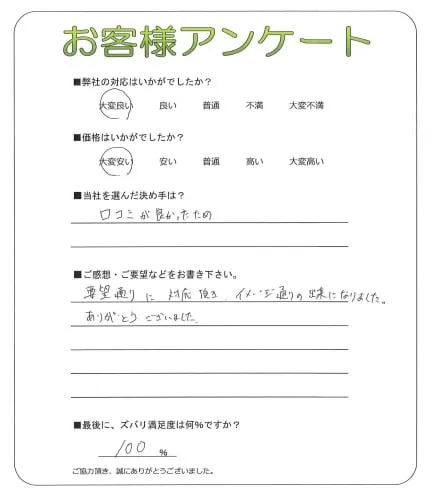 お客様アンケート
■弊社の対応はいかがでしたか？
大変良い 良い 普通 不満 大変不満
■価格はいかがでしたか？
大変安い 安い 普通 高い 大変高い
■当社を選んだ決め手は？
口コミが良かったため
■ご感想・ご要望などをお書き下さい。
要望通りに対応頂き、イメージ通りの出来になりました。
ありがとうございました。
■最後に、ズバリ満足度は何％ですか？
100 ％
ご協力頂き、誠にありがとうございました。